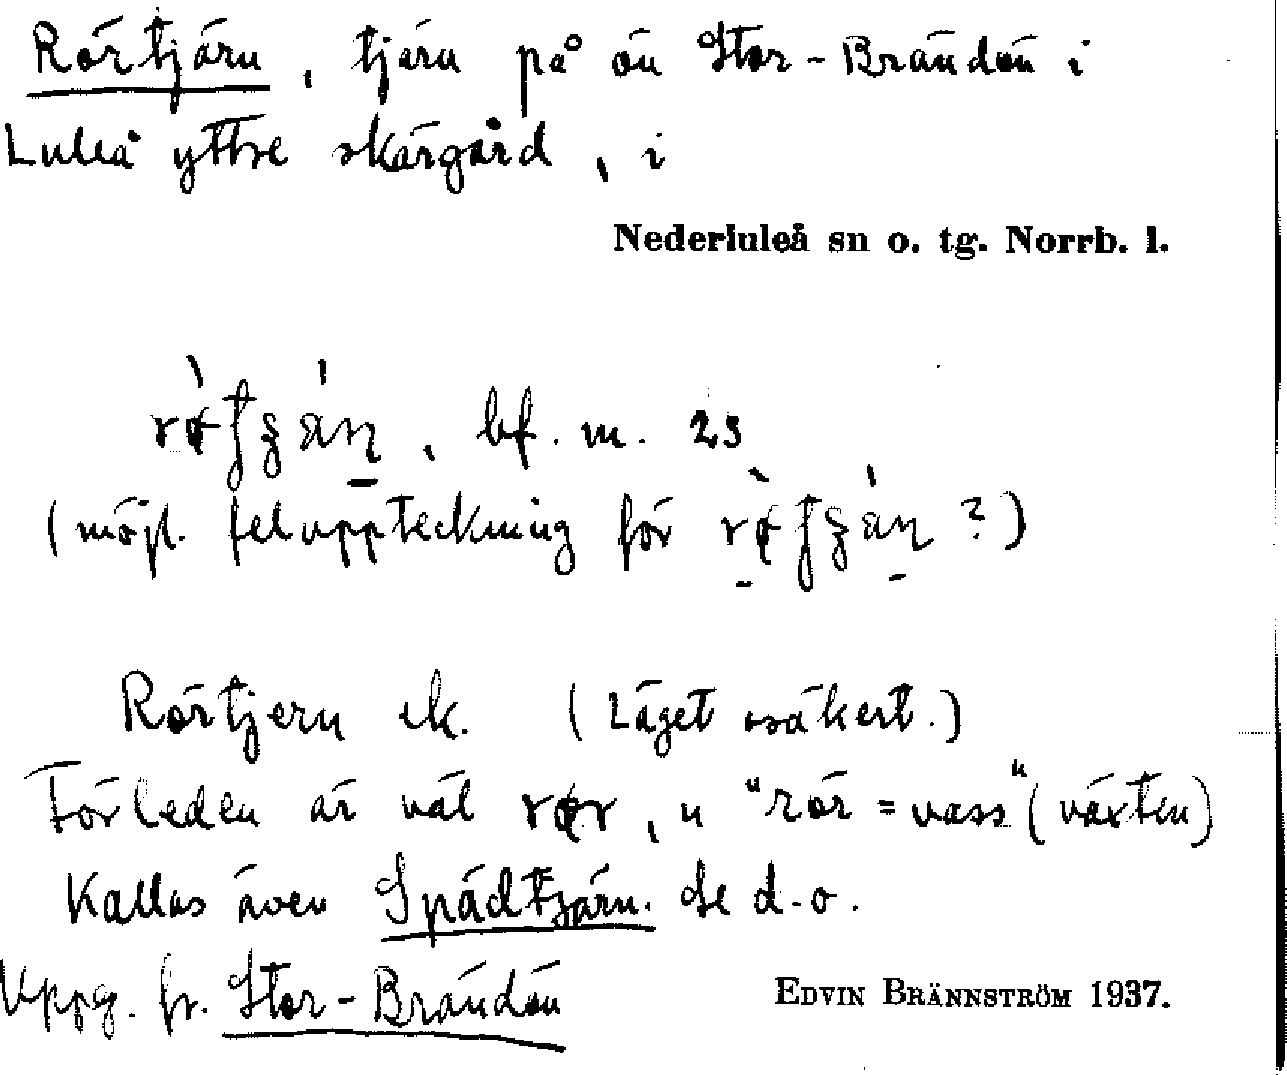 Rörtjärn, tjärn på ön Stor-Brändön i
Luleå yttre skärgård, i
Nederluleå sn o. tg. Norrb. l.
bf. m. 23
(möjl. feluppteckning för ?)
Rörtjern ek. (Läget osäkert.)
Förleden är väl rør, n "rör = vass" (växten)
Kallas även Spädtjärn. Se d-o.
Uppg. fr. Stor-Brändön
EDVIN BRÄNNSTRÖM 1937.